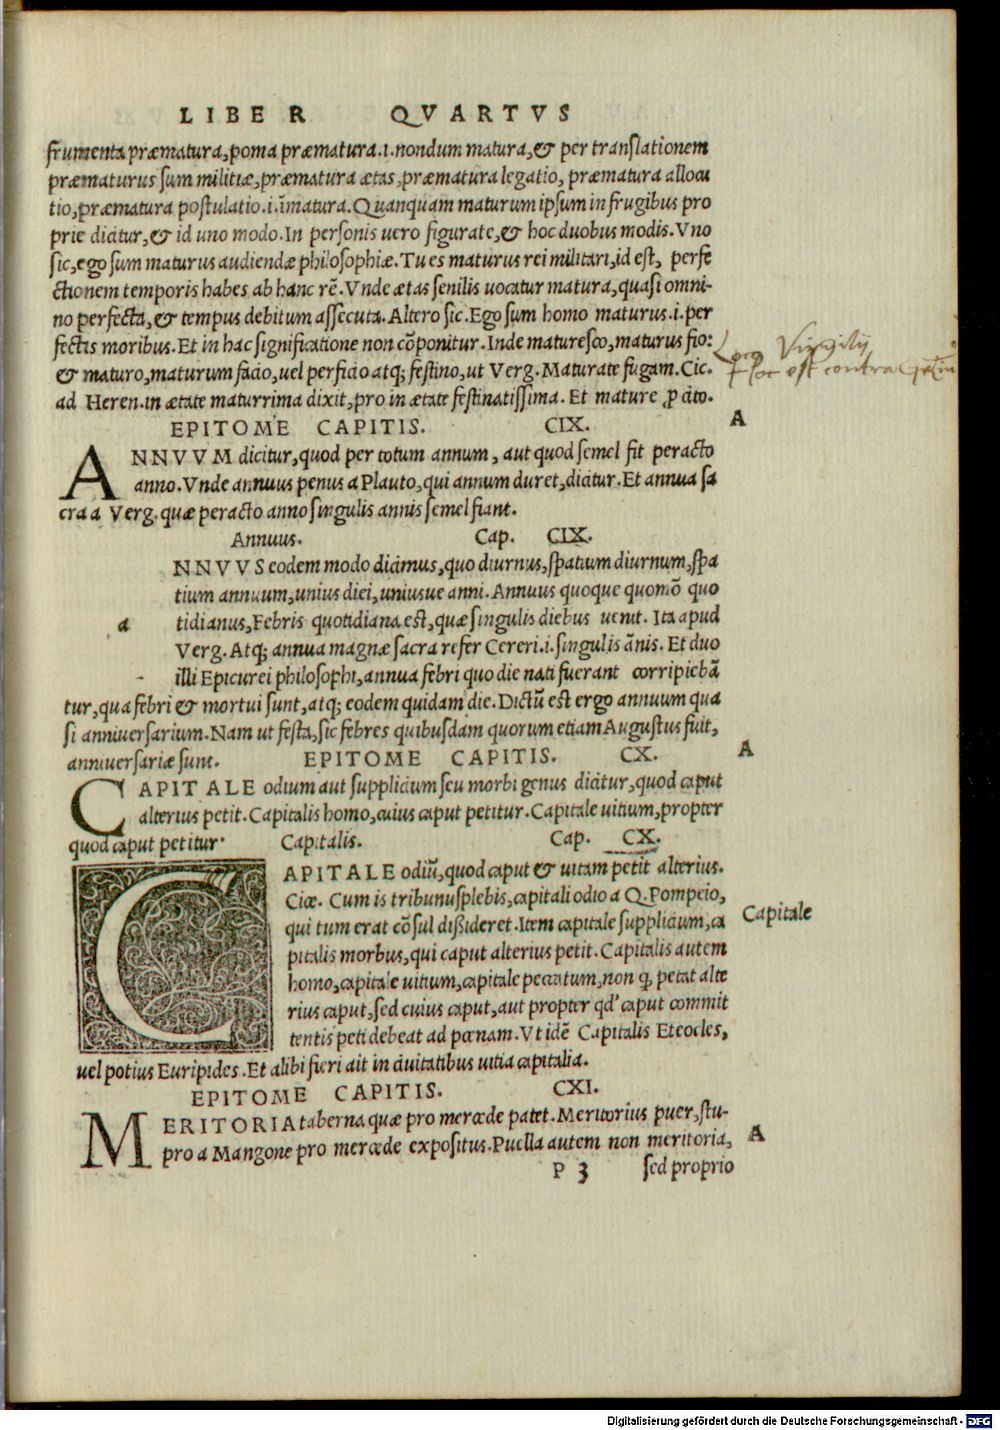 LIBER QVARTVS
frumenta præmatura, poma præmatura .i. nondum matura, & per translationem
præmaturus sum militiæ, præmatura ætas, præmatura legatio, præmatura allocu
tio, præmatura postulatio .i. īmatura. Quanquam maturum ipsum in frugibus pro
prie dicitur, & id uno modo. In personis uero figurate, & hoc duobus modis. Vno
sic, ego sum maturus audiendæ philosophiæ. Tu es maturus rei militari, id est, perfe
ctionem temporis habes ab hanc rē. Vnde ætas senilis uocatur matura, quasi omni-
no perfecta, & tempus debitum assecuta. Altero sic. Ego sum homo maturus .i. per
fectis moribus. Et in hac significatione non cōponitur. Inde maturesco, maturus fio:
& maturo, maturum facio, uel perficio atq; festino, ut Verg. Maturate fugam. Cic.
Virgilij
hoc est contra
ad Heren. in ætate maturrima dixit, pro in ætate festinatissima. Et mature, p cito.
EPITOME CAPITIS. CIX. A
ANNVVM dicitur, quod per totum annum, aut quod semel fit peracto
anno. Vnde annuus penus a Plauto, qui annum duret, dicitur. Et annua sa
cra a Verg. quæ peracto anno singulis annis semel fiant.
Annuus. Cap. CIX.
aNNVVS eodem modo dicimus, quo diurnus, spatium diurnum, spa
tium annuum, unius diei, uniusue anni. Annuus quoque quomō quo
tidianus, Febris quotidiana est, quæ singulis diebus uenit. Ita apud
Verg. Atq; annua magnæ sacra refer Cereri .i. singulis ānis. Et duo
illi Epicurei philosophi, annua febri quo die nati fuerant corripiebā
tur, qua febri & mortui sunt, atq; eodem quidam die. Dictū est ergo annuum qua
si anniuersarium. Nam ut festa, sic febres quibusdam quorum etiam Augustus fuit,
anniuersariæ sunt. EPITOME CAPITIS. CX. A
CAPITALE odium aut supplicium seu morbi genus dicitur, quod caput
alterius petit. Capitalis homo, cuius caput petitur. Capitale uitium, propter
quod caput petitur. Capitalis. Cap. CX.
CAPITALE odiū, quod caput & uitam petit alterius.
Cice. Cum is tribunusplebis, capitali odio a Q. Pompeio,
qui tum erat cōsul dißideret. Item capitale supplicium, ca
Capitale
pitalis morbus, qui caput alterius petit. Capitalis autem
homo, capitale uitium, capitale peccatum, non q, petat alte
rius caput, sed cuius caput, aut propter qd' caput commit
tentis peti debeat ad pœnam. Vt idē Capitalis Eteocles,
uel potius Euripides. Et alibi fieri ait in ciuitatibus uitia capitalia.
EPITOME CAPITIS. CXI.
MERITORIA taberna quæ pro mercede patet. Meritorius puer, stu-
pro a Mangone pro mercede expositus. Puella autem non meritoria, A
P 3 sed proprio
Digitalisierung gefördert durch die Deutsche Forschungsgemeinschaft - DFG